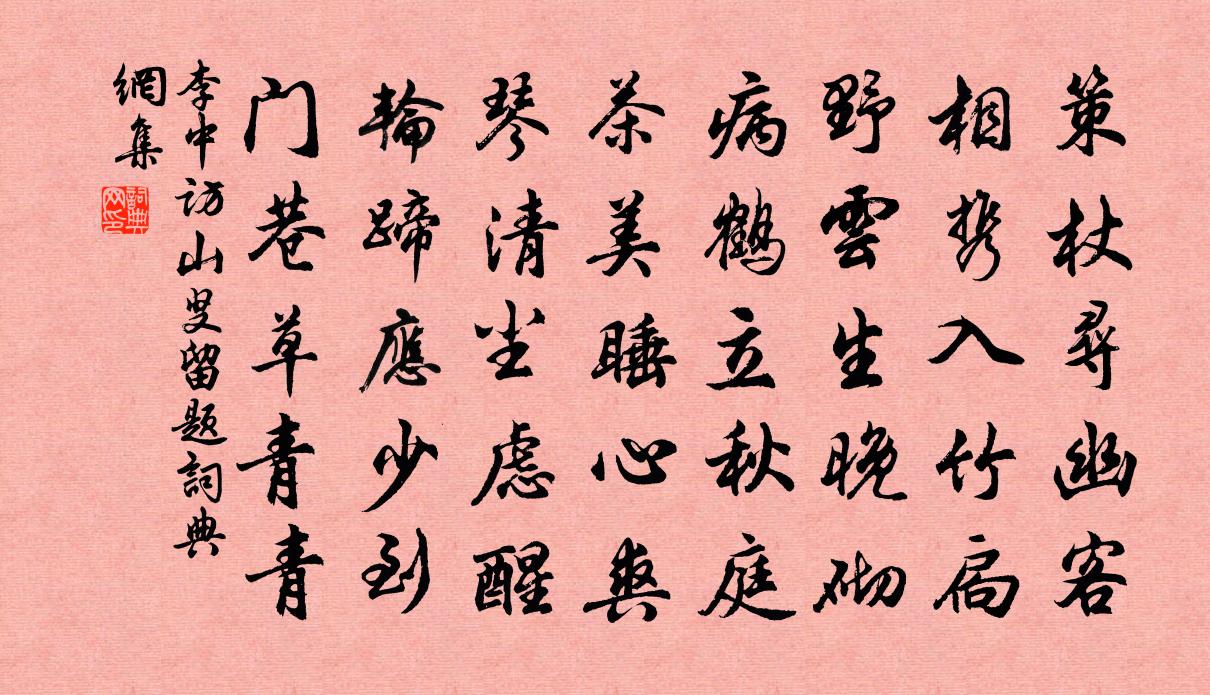 策杖尋幽客
相携入竹扃
野雲生晚砌
病鶴立秋庭
茶美睡心爽
琴清尘虑醒
輪蹄應少到
门巷草青青
李中訪山叟留题詞典
網集
詞典
网印